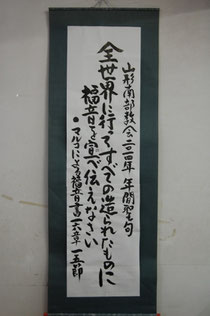 山形南部教会二〇一四年 年間聖句
全世界に行ってすべての造られたものに
福音を宣べ伝えなさい
●マルコによる福音書一六章一五節